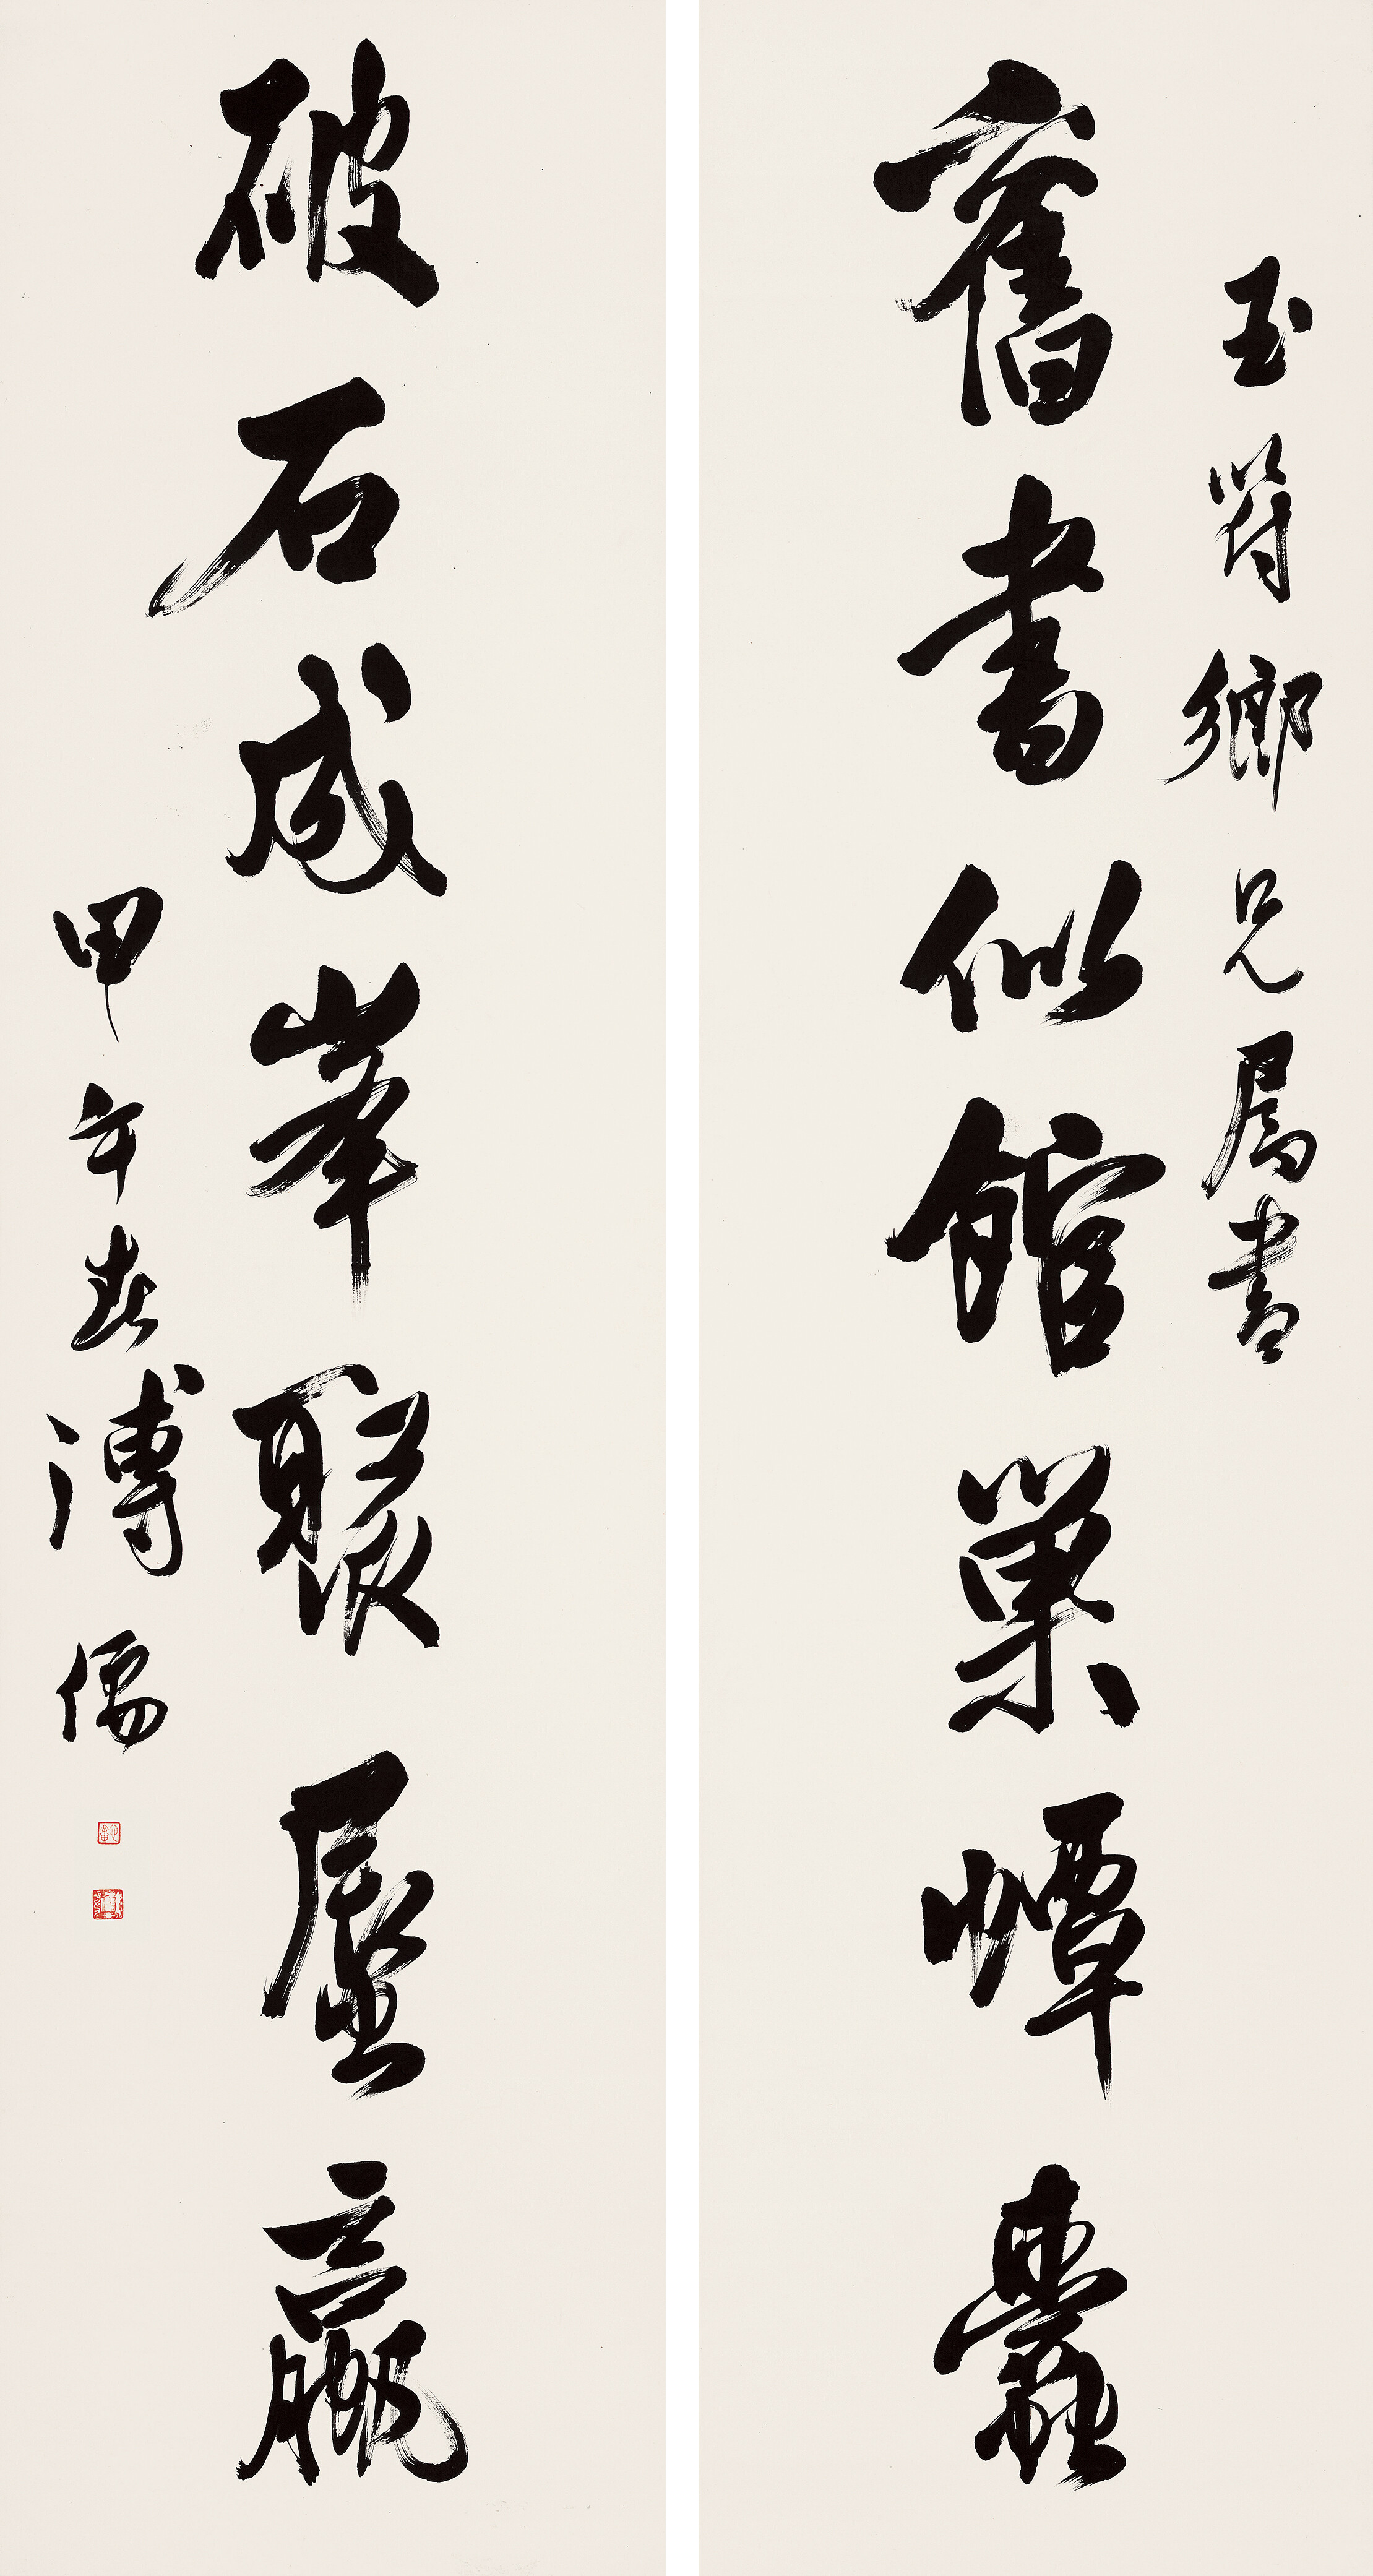 玉符鄉兄屬書
舊書似館巢蟫蠹
破石成峯聚蜃蠃
甲午春溥儒